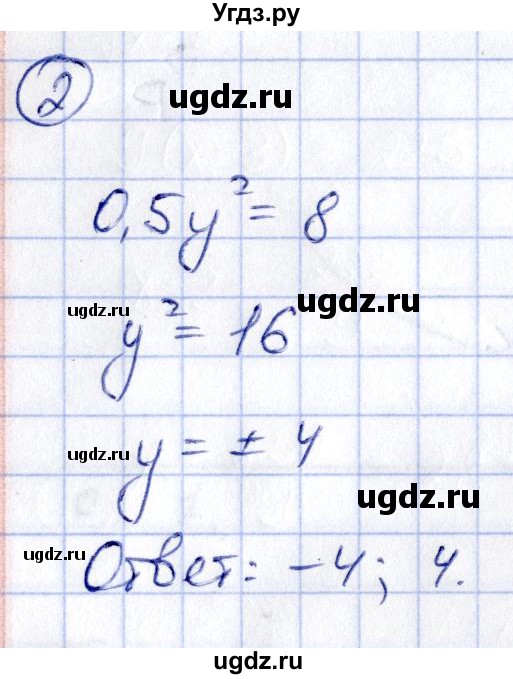 Угдз.ру
2
ugdz.ru
0,5y² = 8
ugdz.ru
ugdz.ru
y² = 16
ugdz.ru
y = ± 4
ugdz.ru
ugdz.ru
Ответ: -4; 4.
ugdz.ru